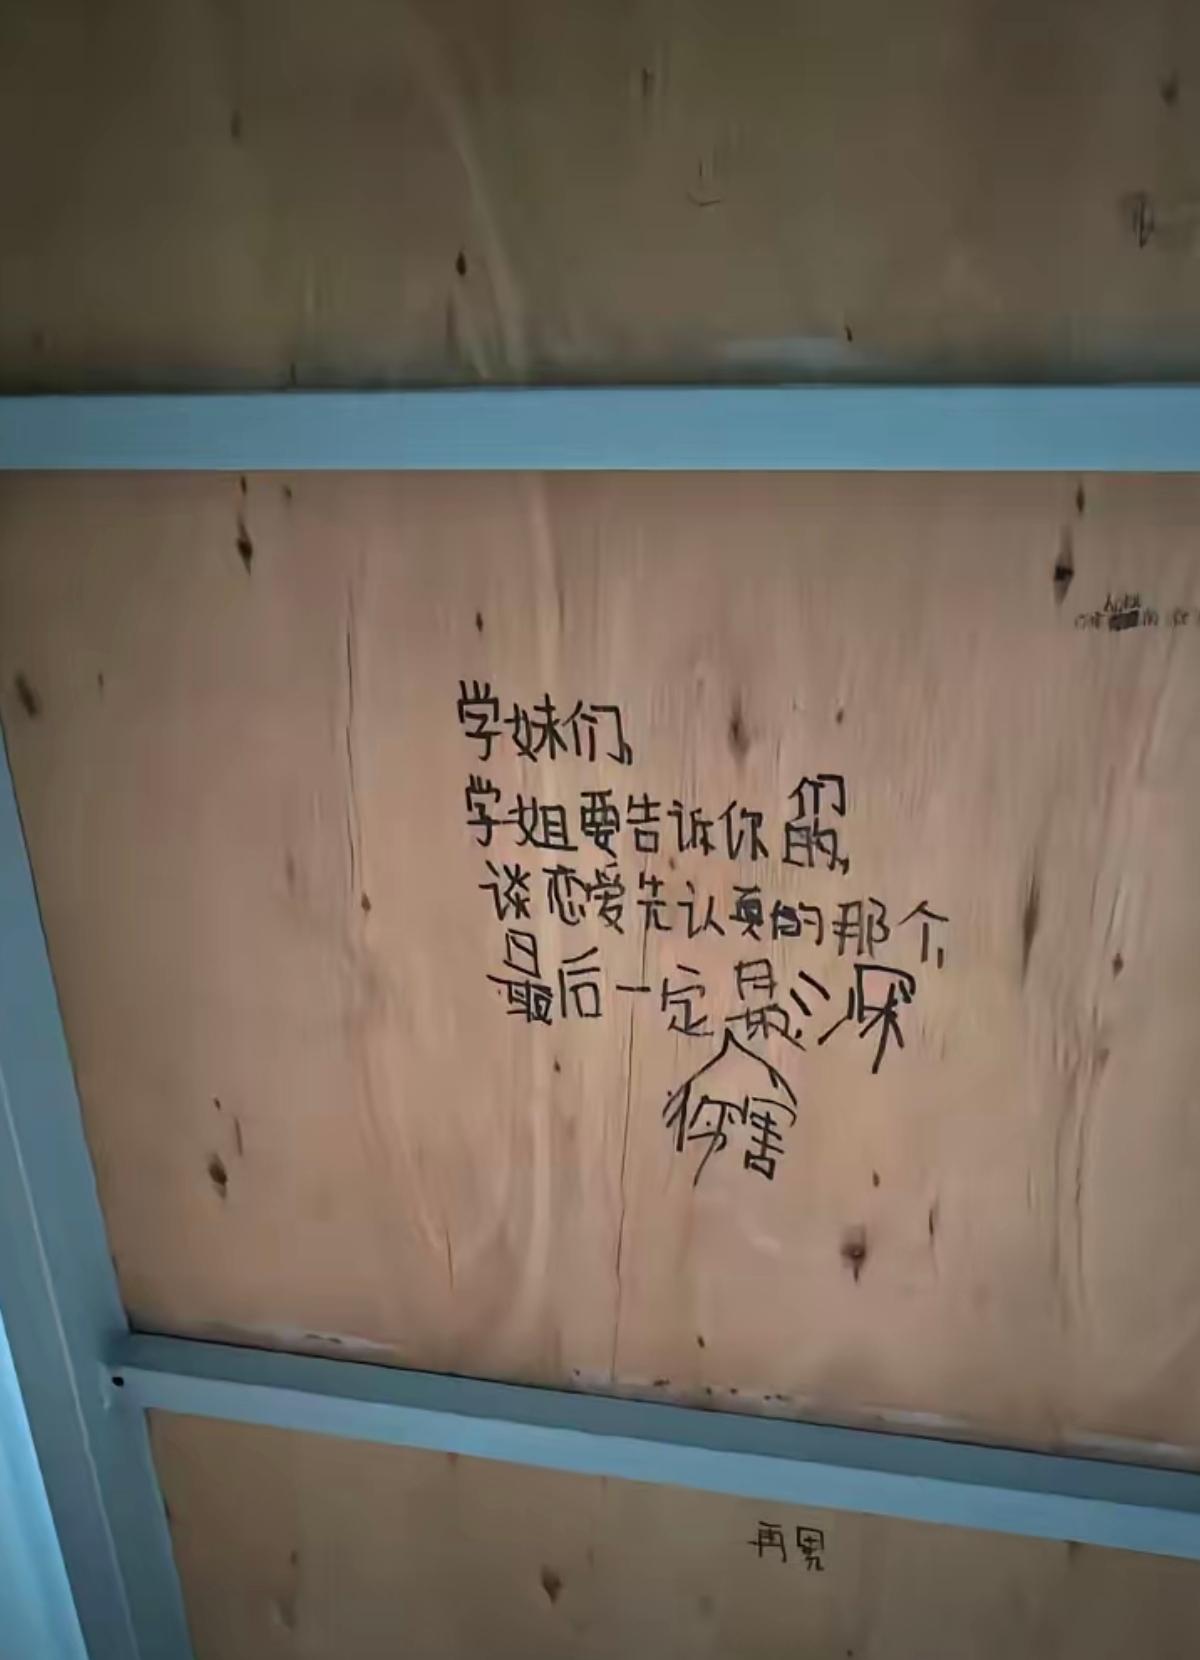 学妹们,
学姐要告诉你们的,
谈恋爱先认真的那个,
最后一定最深
伤害
再